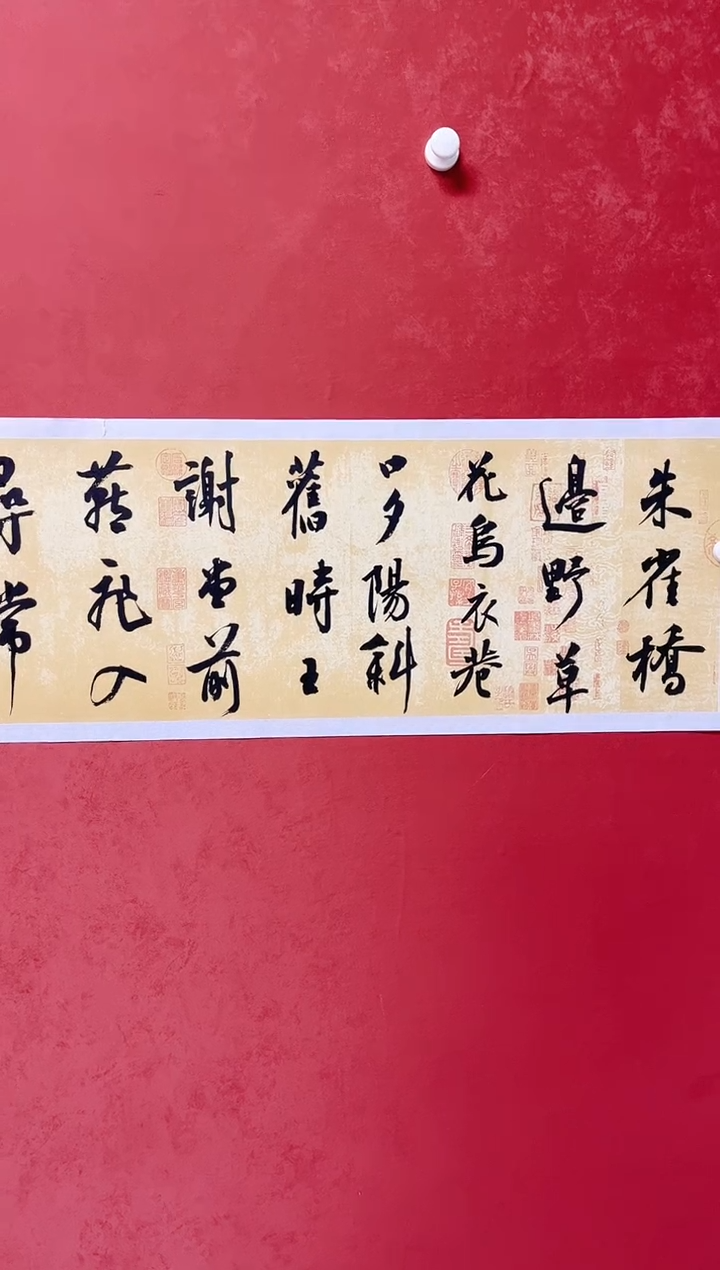 朱雀橋
邊野草
花烏衣巷
口夕陽斜
舊時王
謝堂前
燕飛入
尋常